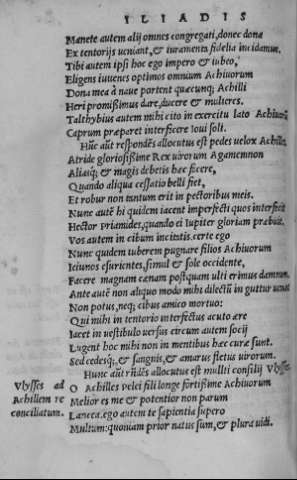 ILIADIS
Manete autem alij omnes congregati, donec dona
Ex tentorijs ueniant, & iuramenta fidelia incidamus.
Tibi autem ipsi hoc ego impero & iubeo,
Eligens iuuenes optimos omnium Achiuorum
Dona mea à naue portent quæcunq; Achilli
Heri promisimus dare, ducere & mulieres.
Talthybius autem mihi cito in exercitu lato Achiuorũ
Caprum præparet interficere Ioui soli.
Hũc aũt respondẽs allocutus est pedes uelox Achilles
Atride gloriosissime Rex uirorum Agamemnon
Aliasq; & magis debetis hæc facere,
Quando aliqua cessatio belli fiet,
Et robur non tantum erit in pectoribus meis.
Nunc autẽ hi quidem iacent imperfecti quos interfecit
Hector priamides, quando ei Iupiter gloriam præbuit.
Vos autem in cibum incitatis. certe ego
Nunc quidem iuberem pugnare filios Achiuorum
Ieiunos esurientes, simul & sole occidente,
Facere magnam cœnam postquam ulti erimus damnum.
Ante autẽ non aliquo modo mihi dilectũ in guttur ueniat
Non potus, neq; cibus amico mortuo:
Qui mihi in tentorio interfectus acuto ære
Iacet in uestibulo uersus circum autem socij
Lugent hoc mihi non in mentibus hæc curæ sunt.
Sed cedesq;, & sangnis, & amarus fletus uirorum.
Hunc aũt rñdẽs allocutus est multi consilij Vlysses
Vlysses ad
Achillem re
conciliatum.
O Achilles pelei fili longe fortissime Achiuorum
Melior es me & potentior non parum
Lancea. ego autem te sapientia supero
Multum: quoniam prior natus sum, & plura uidi.